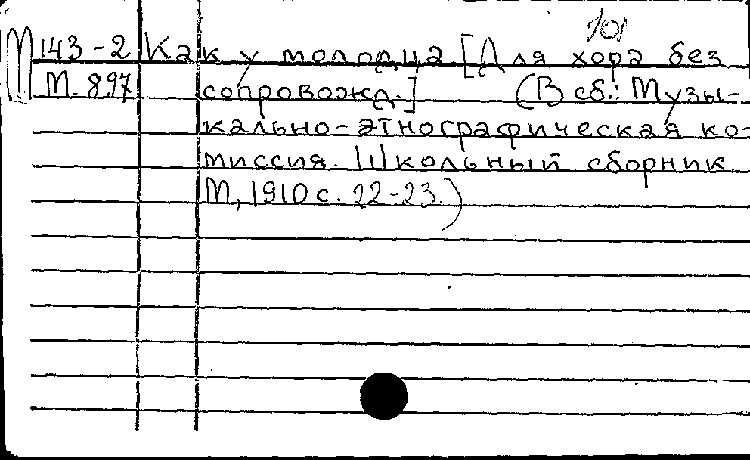 101
М 143-2 Как у молодца [Для хора без
М. 897 сопровожд.] (В сб.: Музы-
кально-этнографическая ко-
миссия. Школьный сборник
М, 1910 с. 22-23.)